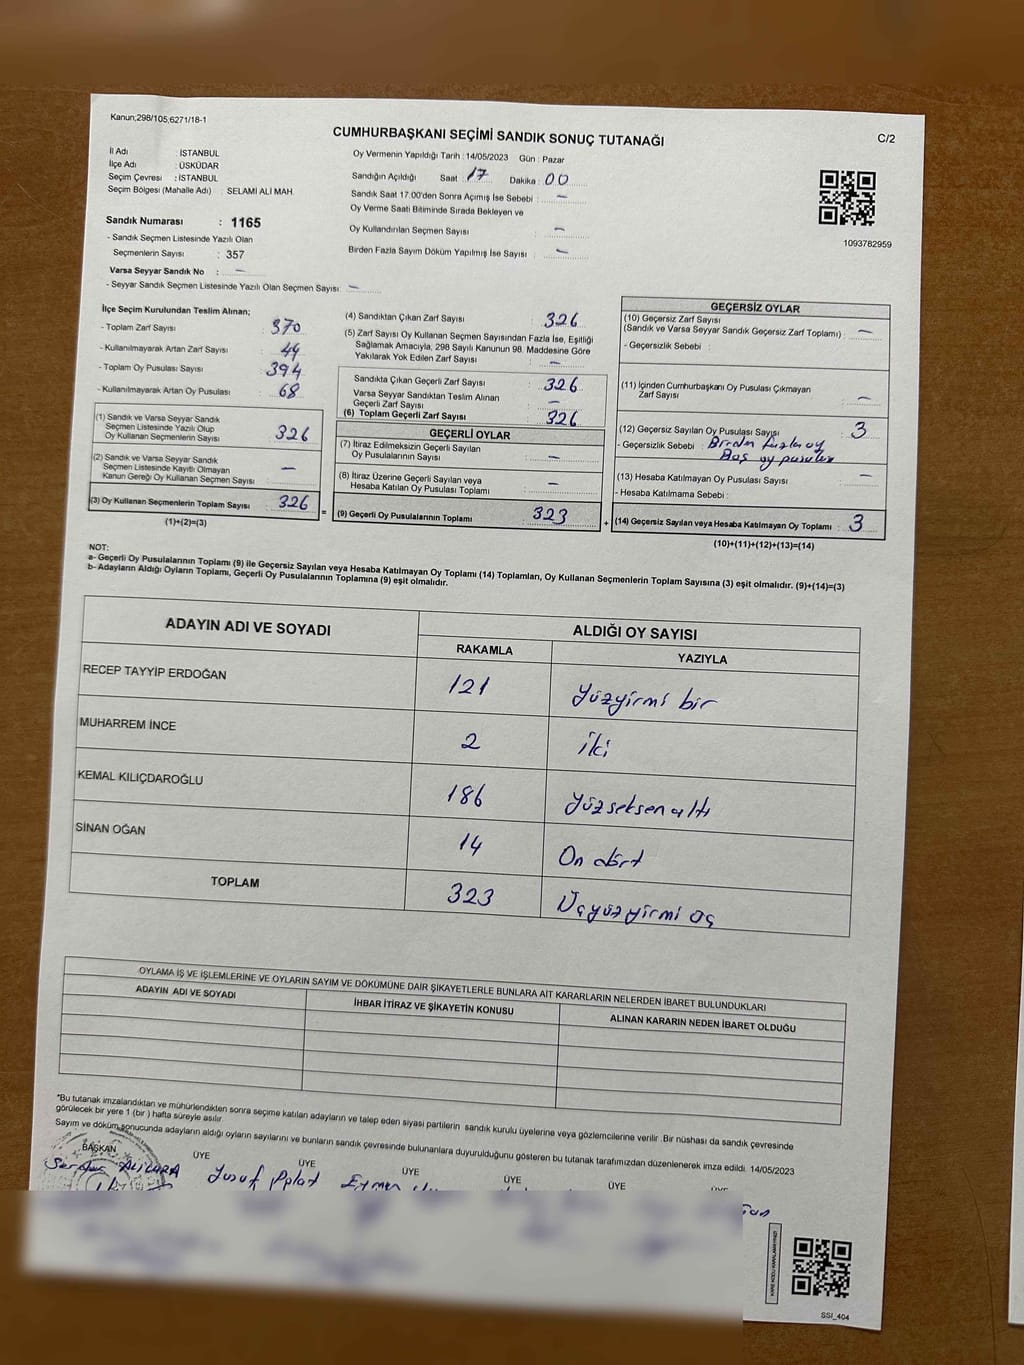 Kanun;298/105;6271/18-1
CUMHURBAŞKANI SEÇİMİ SANDIK SONUÇ TUTANAĞI
C/2
İl Adı : İSTANBUL
İlçe Adı : ÜSKÜDAR
Seçim Çevresi : İSTANBUL
Seçim Bölgesi (Mahalle Adı) : SELAMİ ALİ MAH.
Oy Vermenin Yapıldığı Tarih : 14/05/2023 Gün : Pazar
Sandığın Açıldığı Saat 17 Dakika : 00
Sandık Saat 17:00'den Sonra Açımış İse Sebebi : –
Oy Verme Saati Bitiminde Sırada Bekleyen ve
Oy Kullandırılan Seçmen Sayısı : –
Birden Fazla Sayım Döküm Yapılmış İse Sayısı : –
1093782959
Sandık Numarası : 1165
- Sandık Seçmen Listesinde Yazılı Olan
Seçmenlerin Sayısı : 357
Varsa Seyyar Sandık No : –
- Seyyar Sandık Seçmen Listesinde Yazılı Olan Seçmen Sayısı: –
İlçe Seçim Kurulundan Teslim Alınan;
- Toplam Zarf Sayısı : 370
- Kullanılmayarak Artan Zarf Sayısı : 44
- Toplam Oy Pusulası Sayısı : 394
- Kullanılmayarak Artan Oy Pusulası : 68
(1) Sandık ve Varsa Seyyar Sandık
Seçmen Listesinde Yazılı Olup
Oy Kullanan Seçmenlerin Sayısı : 326
(2) Sandık ve Varsa Seyyar Sandık
Seçmen Listesinde Kayıtlı Olmayan
Kanun Gereği Oy Kullanan Seçmen Sayısı : –
(3) Oy Kullanan Seçmenlerin Toplam Sayısı : 326
(1)+(2)=(3)
(4) Sandıktan Çıkan Zarf Sayısı : 326
(5) Zarf Sayısı Oy Kullanan Seçmen Sayısından Fazla İse, Eşitliği
Sağlamak Amacıyla, 298 Sayılı Kanunun 98. Maddesine Göre
Yakılarak Yok Edilen Zarf Sayısı : –
Sandıkta Çıkan Geçerli Zarf Sayısı : 326
Varsa Seyyar Sandıktan Teslim Alınan
Geçerli Zarf Sayısı : –
(6) Toplam Geçerli Zarf Sayısı : 326
GEÇERLİ OYLAR
(7) İtiraz Edilmeksizin Geçerli Sayılan
Oy Pusulalarının Sayısı : –
(8) İtiraz Üzerine Geçerli Sayılan veya
Hesaba Katılan Oy Pusulası Toplamı : –
= (9) Geçerli Oy Pusulalarının Toplamı : 323
GEÇERSİZ OYLAR
(10) Geçersiz Zarf Sayısı
(Sandık ve Varsa Seyyar Sandık Geçersiz Zarf Toplamı) : –
- Geçersizlik Sebebi :
(11) İçinden Cumhurbaşkanı Oy Pusulası Çıkmayan
Zarf Sayısı : –
(12) Geçersiz Sayılan Oy Pusulası Sayısı : 3
- Geçersizlik Sebebi : Birden fazla oy
Boş oy pusulası
(13) Hesaba Katılmayan Oy Pusulası Sayısı : –
- Hesaba Katılmama Sebebi :
+ (14) Geçersiz Sayılan veya Hesaba Katılmayan Oy Toplamı : 3
(10)+(11)+(12)+(13)=(14)
NOT:
a- Geçerli Oy Pusulalarının Toplamı (9) ile Geçersiz Sayılan veya Hesaba Katılmayan Oy Toplamı (14) Toplamları, Oy Kullanan Seçmenlerin Toplam Sayısına (3) eşit olmalıdır. (9)+(14)=(3)
b- Adayların Aldığı Oyların Toplamı, Geçerli Oy Pusulalarının Toplamına (9) eşit olmalıdır.
ADAYIN ADI VE SOYADI
ALDIĞI OY SAYISI
RAKAMLA YAZIYLA
RECEP TAYYİP ERDOĞAN 121 Yüzyirmi bir
MUHARREM İNCE 2 İki
KEMAL KILIÇDAROĞLU 186 Yüzseksenaltı
SİNAN OĞAN 14 On dört
TOPLAM 323 Üçyüzyirmi üç
OYLAMA İŞ VE İŞLEMLERİNE VE OYLARIN SAYIM VE DÖKÜMÜNE DAİR ŞİKAYETLERLE BUNLARA AİT KARARLARIN NELERDEN İBARET BULUNDUKLARI
ADAYIN ADI VE SOYADI İHBAR İTİRAZ VE ŞİKAYETİN KONUSU ALINAN KARARIN NEDEN İBARET OLDUĞU
*Bu tutanak imzalandıktan ve mühürlendikten sonra seçime katılan adayların ve talep eden siyasi partilerin sandık kurulu üyelerine veya gözlemcilerine verilir .Bir nüshası da sandık çevresinde
görülecek bir yere 1 (bir ) hafta süreyle asılır.
Sayım ve döküm sonucunda adayların aldığı oyların sayılarını ve bunların sandık çevresinde bulunanlara duyurulduğunu gösteren bu tutanak tarafımızdan düzenlenerek imza edildi. 14/05/2023
BAŞKAN ÜYE ÜYE ÜYE ÜYE ÜYE
Yusuf Polat
SSI_404